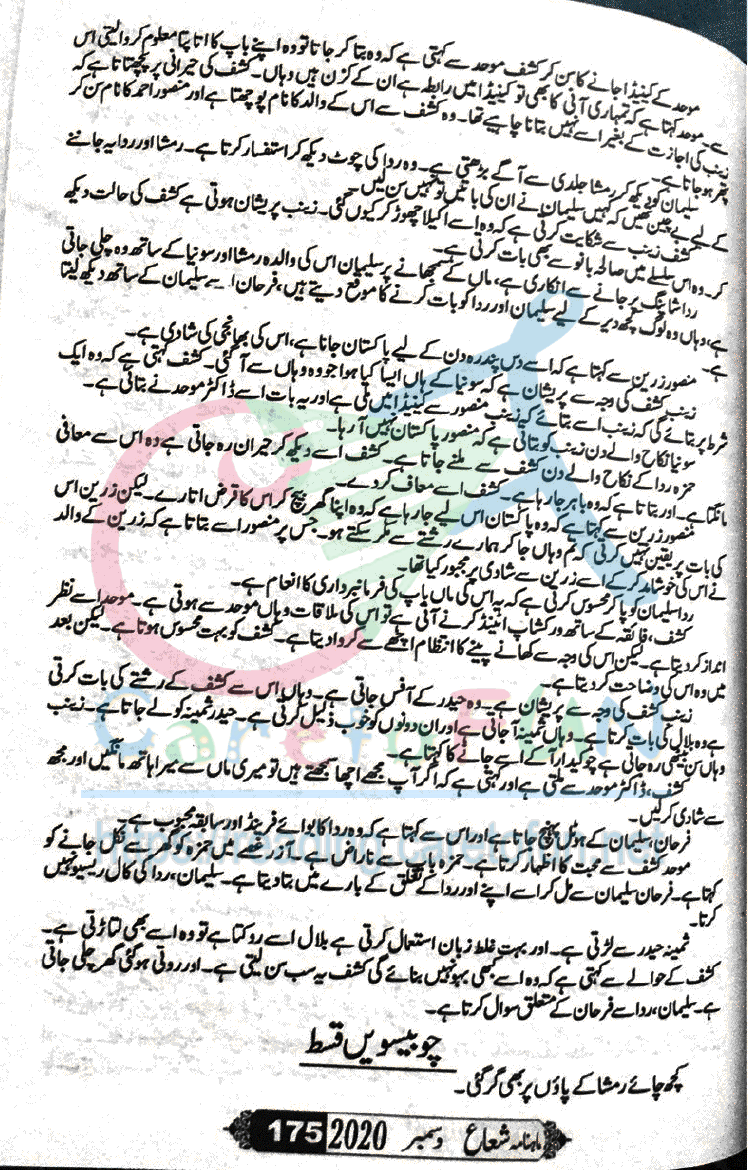 موحد کے کینیڈا جانے کا سن کر کشف موحد سے کہتی ہے کہ وہ بتا کر جاتا تو وہ اپنے باپ کا اتا پتا معلوم کروا لیتی اس
سے۔ موحد کہتا ہے کہ تمہاری آنی کا بھی تو کینیڈا میں رابطہ ہے ان کے کزن ہیں وہاں۔ کشف کی حیرانی پر پچھتاتا ہے کہ
زینب کی اجازت کے بغیر اسے نہیں بتانا چاہیے تھا۔ وہ کشف سے اس کے والد کا نام پوچھتا ہے اور منصور احمد کا نام سن کر
پتھر ہو جاتا ہے۔
سلیمان کو دیکھ کر رمشا جلدی سے آگے بڑھتی ہے۔ وہ ردا کی چوٹ دیکھ کر استفسار کرتا ہے۔ رمشا اور ردا یہ جاننے
کے لیے بے چین تھیں کہ کہیں سلیمان نے ان کی باتیں تو نہیں سن لیں۔
کشف زینب سے شکایت کرتی ہے کہ وہ اسے اکیلا چھوڑ کر کیوں گئی۔ زینب پریشان ہوتی ہے کشف کی حالت دیکھ
کر۔ وہ اس سلسلے میں صالحہ بانو سے بھی بات کرتی ہے۔
ردا شاپنگ پر جانے سے انکاری ہے، ماں کے سمجھانے پر سلیمان اس کی والدہ رمشا اور سونیا کے ساتھ وہ چلی جاتی
ہے، وہاں وہ لوگ کچھ دیر کے لیے سلیمان اور ردا کو بات کرنے کا موقع دیتے ہیں، فرحان اسے سلیمان کے ساتھ دیکھ لیتا
ہے۔
منصور زرین سے کہتا ہے کہ اسے دس پندرہ دن کے لیے پاکستان جانا ہے، اس کی بھانجی کی شادی ہے۔
زینب کشف کی وجہ سے پریشان ہے کہ سونیا کے ہاں ایسا کیا ہوا جو وہ وہاں سے آ گئی۔ کشف کہتی ہے کہ وہ ایک
شرط پر بتائے گی کہ زینب اسے بتائے کہ زینب منصور سے کینیڈا میں ملی ہے اور یہ بات اسے ڈاکٹر موحد نے بتائی ہے۔
سونیا نکاح والے دن زینب کو بتاتی ہے کہ منصور پاکستان نہیں آ رہا۔
حمزہ ردا کے نکاح والے دن کشف سے ملنے جاتا ہے۔ کشف اسے دیکھ کر حیران رہ جاتی ہے وہ اس سے معافی
مانگتا ہے۔ اور بتاتا ہے کہ وہ باہر جا رہا ہے۔ کشف اسے معاف کر دے۔
منصور زرین سے کہتا ہے کہ وہ پاکستان اس لیے جا رہا ہے کہ وہ اپنا گھر بیچ کر اس کا قرض اتارے۔ لیکن زرین اس
کی بات پر یقین نہیں کرتی کہ تم وہاں جا کر ہمارے رشتے سے مکر سکتے ہو۔ جس پر منصور اسے بتاتا ہے کہ زرین کے والد
نے اس کی خوشامد کر کے اسے زرین سے شادی پر مجبور کیا تھا۔
ردا سلیمان کو پا کر محسوس کرتی ہے کہ یہ اس کی ماں باپ کی فرمانبرداری کا انعام ہے۔
کشف، فائقہ کے ساتھ ورکشاپ اٹینڈ کرنے آتی ہے تو اس کی ملاقات وہاں موحد سے ہوتی ہے۔ موحد اسے نظر
انداز کر دیتا ہے۔ لیکن اس کی وجہ سے کھانے پینے کا انتظام اچھے سے کروا دیتا ہے۔ کشف کو بہت محسوس ہوتا ہے۔ لیکن بعد
میں وہ اس کی وضاحت کر دیتا ہے۔
زینب کشف کی وجہ سے پریشان ہے۔ وہ حیدر کے آفس جاتی ہے۔ وہاں اس سے کشف کے رشتے کی بات کرتی
ہے وہ بلال کی بات کرتا ہے۔ وہاں ثمینہ آ جاتی ہے اور ان دونوں کو خوب ذلیل کرتی ہے۔ حیدر ثمینہ کو لے جاتا ہے۔ زینب
وہاں سن بیٹھی رہ جاتی ہے چوکیدار آ کے اسے جانے کا کہتا ہے۔
کشف، ڈاکٹر موحد سے ملتی ہے اور کہتی ہے کہ اگر آپ مجھے اچھا سمجھتے ہیں تو میری ماں سے میرا ہاتھ مانگیں اور مجھ
سے شادی کر لیں۔
فرحان، سلیمان کے ہوٹل پہنچ جاتا ہے اور اس سے کہتا ہے کہ وہ ردا کا بوائے فرینڈ اور سابقہ محبوب ہے۔
موحد کشف سے محبت کا اظہار کرتا ہے۔ حمزہ باپ سے ناراض ہے۔ آزر غصے میں حمزہ کو گھر سے نکل جانے کو
کہتا ہے۔ فرحان سلیمان سے مل کر اسے اپنے اور ردا کے تعلق کے بارے میں بتا دیتا ہے۔ سلیمان، ردا کی کال ریسیو نہیں
کرتا۔
ثمینہ حیدر سے لڑتی ہے۔ اور بہت غلط زبان استعمال کرتی ہے بلال اسے روکتا ہے تو وہ اسے بھی لتاڑتی ہے۔
کشف کے حوالے سے کہتی ہے کہ وہ اسے کبھی بہو نہیں بنائے گی کشف یہ سب سن لیتی ہے۔ اور روتی ہوئی گھر چلی جاتی
ہے۔ سلیمان، ردا سے فرحان کے متعلق سوال کرتا ہے۔
چوبیسویں قسط
کچھ چائے رمشا کے پاؤں پر بھی گر گئی۔
ماہنامہ شعاع دسمبر 2020 175
CaretoFUN
https://reading.caretofun.net